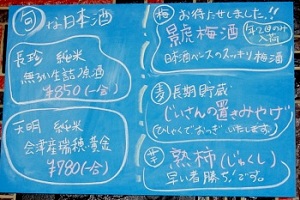 旬な日本酒
長珍 純米
無ろ過生詰原酒
¥850(一合)
天明 純米
会津産瑞穂黄金
¥780(一合)
梅 お待たせしました!!
景虎梅酒
年2回のみ
入荷
日本酒ベースのスッキリ梅酒
麦 長期貯蔵
じいさんの置きみやげ
ひしゃくでおつぎいたします。
芋 熟柿(じゅくし)
早い者勝ち!です。